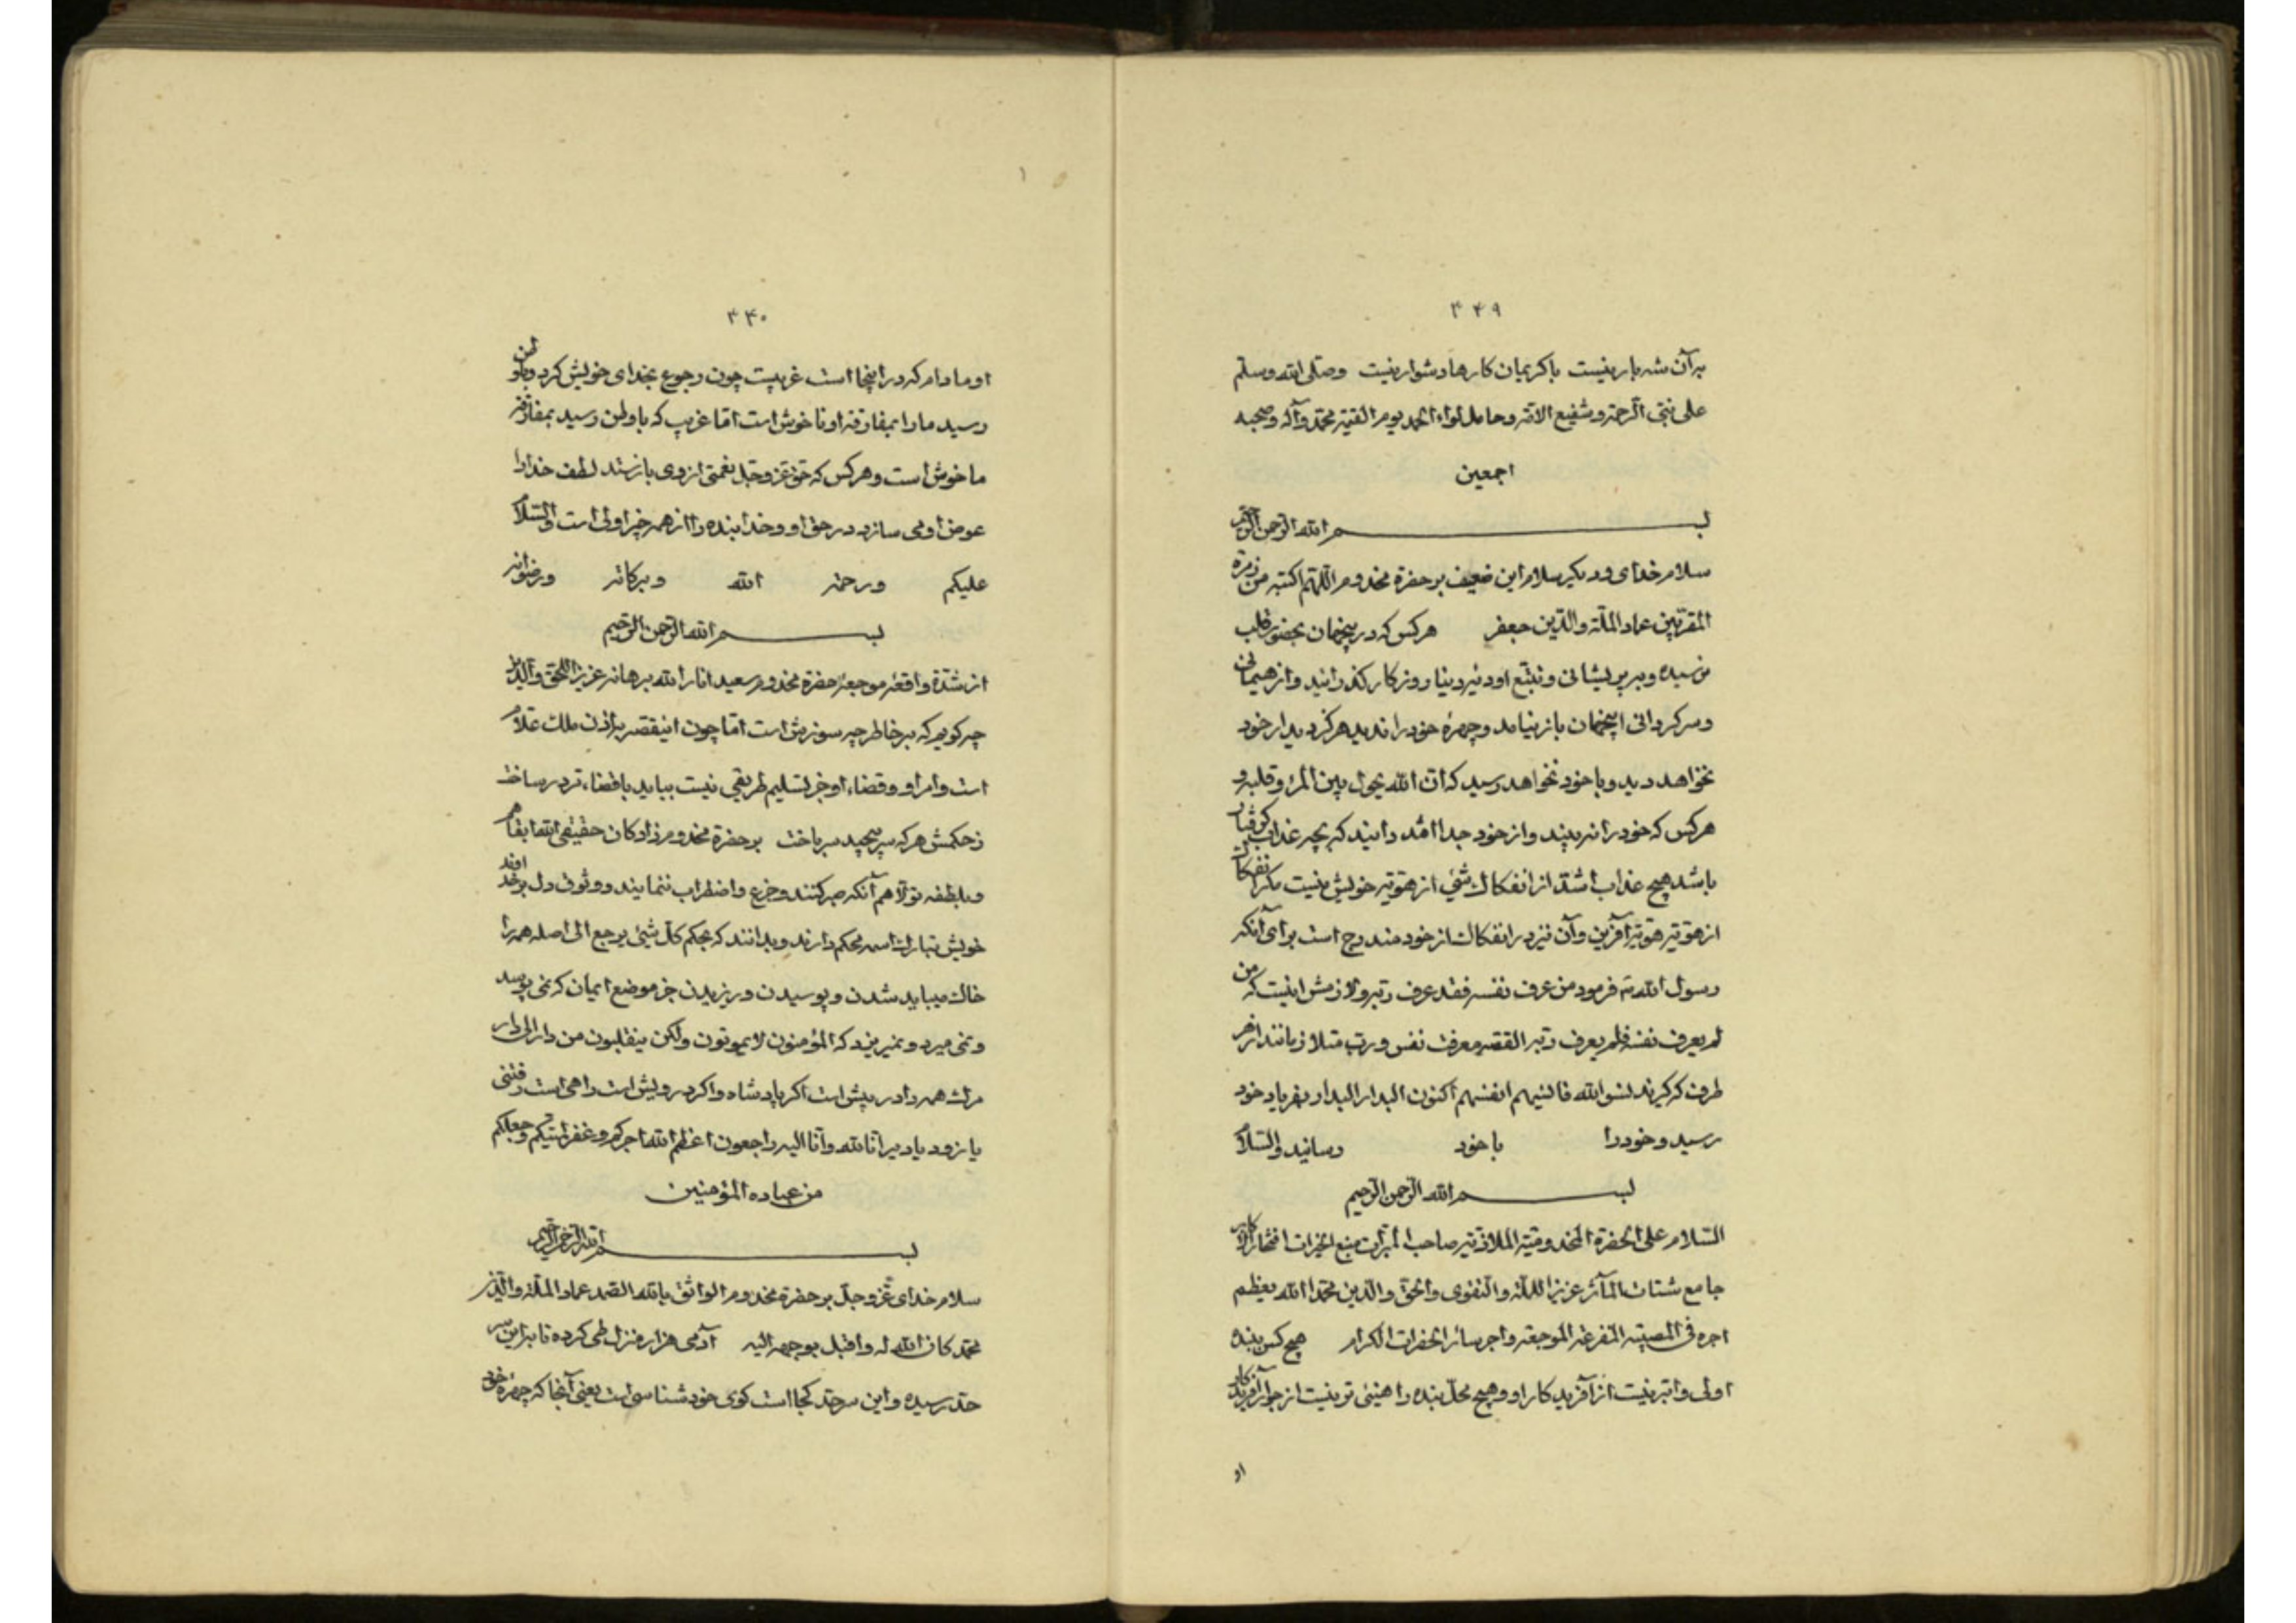 ۳۴۹
بر آن شه بار نیست با کریمان کارها دشوار نیست وصلی الله وسلم
علی نبی الرحمة و شفیع الامة و حامل لواء الحمد یوم القیمة محمد و آله و صحبه
اجمعین
بسم الله الرحمن الرحیم
سلام خدای و دیگر سلام این ضعیف بر حضرة مخدوم اللهم اکتبه من زمرة
المقربین عماد الملة والدین جعفر هر کس که در ینجهان بحضور قلب
نرسیده و بر پریشانی و تتبع او دنیا روزگار گذرانید و از
و سرگردانی اینجهان باز نیامد و چهرهٔ خود را ندید هرگز دیدار خود
نخواهد دید و با خود نخواهد رسید که ان الله یحول بین المرء و قلبه و
هر کس که خود را نه بیند و از خود جدا افتد دانید که بچه عذاب گرفتار
باشد هیچ عذاب اشد از انفکاک شیٔ از هویّة خویش نیست مگر انفکاک
از هویّة هویّة آفرین و آن نیز در انفکاک از خود مندرج است برای آنکه
رسول الله فرمود من عرف نفسه فقد عرف ربه و لازمش اینست که من
لم یعرف نفسه فلم یعرف ربه القصه معرفت نفس و رب متلازمانند از هر
طرف که گیرند نسوا الله فانسیهم انفسهم اکنون البدار البدار بفریاد خود
رسید و خود را با خود رسانید والسلام
بسم الله الرحمن الرحیم
السلام علی الحضرة المخدومیة الملاذیة صاحب المبرات منبع الخیرات افتخار الاکابر
جامع شتات المآثر عزیز الملة والتقوی والحق والدین محمد الله یعظم
اجره فی المصیبة المفزعة الموجعة و اجر سائر الحضرات الکرام هیچ کس ببنده
اولی و ابر نیست از آفریدکار او و هیچ محل بنده را هنیٔ تر نیست از جوار آفریدکار
او
۳۴۰
او مادام که در اینجا است غریبست چون رجوع بخدای خویش کرد و باوطن
رسید ما را بمفارقة او ناخوش است اما غریب که باوطن رسید بمفارقة
ما خوش است و هر کس که حق عز وجل نعمتی از وی بازستد لطف خدا را
عوض او می سازد در حق او و خدا بنده را از همه خیر اولی است والسلام
علیکم ورحمة الله وبرکاته ورضوانه
بسم الله الرحمن الرحیم
از شدّة واقعهٔ موجعهٔ حضرة مخدوم سعید انار الله برهانه عزیز الحق والدین
چه گویم که بر خاطر چه سوزش است اما چون اینقصه باذن ملک علام
است و امر او و قضاء او جز تسلیم طریقی نیست بباید باقضاء تو در ساخت
ز حکمش هر که سر پیچید سر باخت بر حضرة مخدوم زادکان حقیقی الله ابقاهم
و بلطفه تولاهم آنکه صبر کنند و جزع و اضطراب ننمایند و وثوق دل بر خداوند
خویش تبارک اسمه محکم دارند و بدانند که بحکم کل شیٔ یرجع الی اصله همه را
خاک میباید شدن و پوسیدن و ریزیدن جز موضع ایمان که نمی پوسد
و نمی میرد و نمیریزد که المؤمنون لا یموتون ولکن ینقلبون من دار الی دار
مرک همه را در پیش است اگر پادشاه و اگر درویش است راهی است رفتنی
یا زود یا دیر انا لله وانا الیه راجعون اعظم الله اجرکم و غفر لمیتکم وجعلکم
من عباده المؤمنین
بسم الله الرحمن الرحیم
سلام خدای عز وجل بر حضرة مخدوم الواثق بالله الصمد عماد الملة والدین
محمد کان الله له واقبل بوجهه الیه آدمی هزار منزل طی کرده تا براین سر
حد رسیده و این سرحد کجا است کوی خود شناسی است یعنی آنجا که چهرهٔ خود